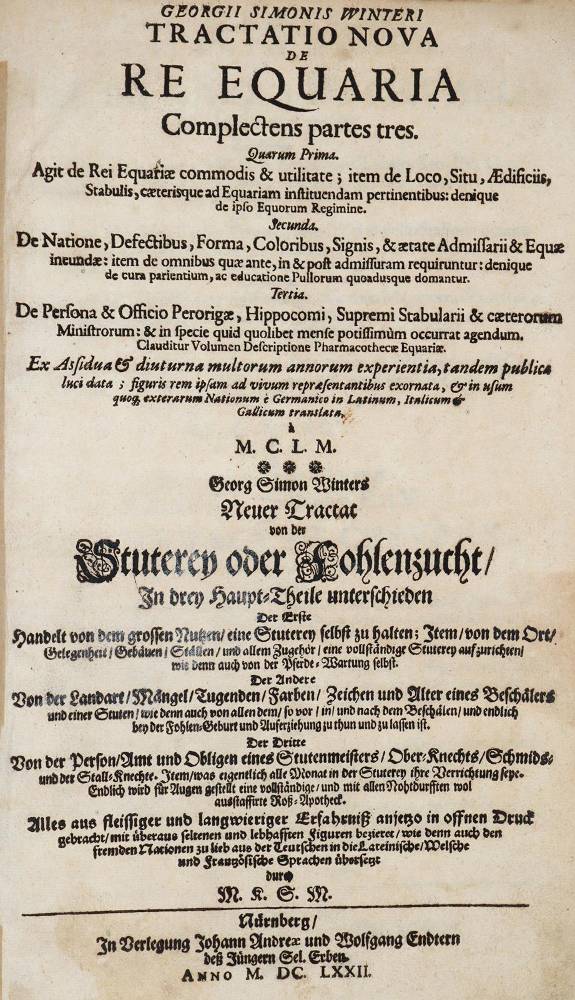 GEORGII SIMONIS WINTERI
TRACTATIO NOVA
DE
RE EQUARIA
Complectens partes tres.
Quarum Prima.
Agit de Rei Equariæ commodis & utilitate; item de Loco, Situ, Ædificiis,
Stabulis, cæterisque ad Equariam instituendam pertinentibus: denique
de ipso Equorum Regimine.
Secunda.
De Natione, Defectibus, Forma, Coloribus, Signis, & ætate Admissarii & Equæ
ineundæ: item de omnibus quæ ante, in & post admissuram requiruntur: denique
de cura parientium, ac educatione Pullorum quoadusque domantur.
Tertia.
De Persona & Officio Perorigæ, Hippocomi, Supremi Stabularii & cæterorum
Ministrorum: & in specie quid quolibet mense potissimùm occurrat agendum.
Clauditur Volumen Descriptione Pharmacothecæ Equariæ.
Ex Assidua & diuturna multorum annorum experientia, tandem publicæ
luci data; figuris rem ipsam ad vivum repræsentantibus exornata, & in usum
quoq; exterarum Nationum è Germanico in Latinum, Italicum &
Gallicum translata,
à
M. C. L. M.
Georg Simon Winters
Neuer Tractat
von der
Stuterey oder Fohlenzucht/
In drey Haupt-Theile unterschieden
Der Erste
Handelt von dem grossen Nutzen/ eine Stuterey selbst zu halten; Item/ von dem Ort/
Gelegenheit/ Gebäuen/ Ställen/ und allem Zugehör/ eine vollständige Stuterey aufzurichten/
wie denn auch von der Pferde-Wartung selbst.
Der Andere
Von der Landart/ Mängel/ Tugenden/ Farben/ Zeichen und Alter eines Beschälers
und einer Stuten/ wie denn auch von allen dem/ so vor/ in/ und nach dem Beschälen/ und endlich
bey der Fohlen-Geburt und Auferziehung zu thun und zu lassen ist.
Der Dritte
Von der Person/ Amt und Obligen eines Stutenmeisters/ Ober-Knechts/ Schmids-
und der Stall-Knechte. Item/ was eigentlich alle Monat in der Stuterey ihre Verrichtung seye.
Endlich wird für Augen gestellt eine vollständige/ und mit allen Nohtdurfften wol
ausstaffirte Roß-Apotheck.
Alles aus fleissiger und langwieriger Erfahrniß anjetzo in offnen Druck
gebracht/ mit überaus seltenen und lebhafften Figuren bezieret/ wie denn auch den
fremden Nationen zu lieb aus der Teutschen in die Lateinische/ Welsche
und Frantzösische Sprachen übersetzt
durch
M. K. S. M.
Nürnberg/
In Verlegung Johann Andreæ und Wolfgang Endtern
deß Jüngern Sel. Erben.
ANNO M. DC. LXXII.